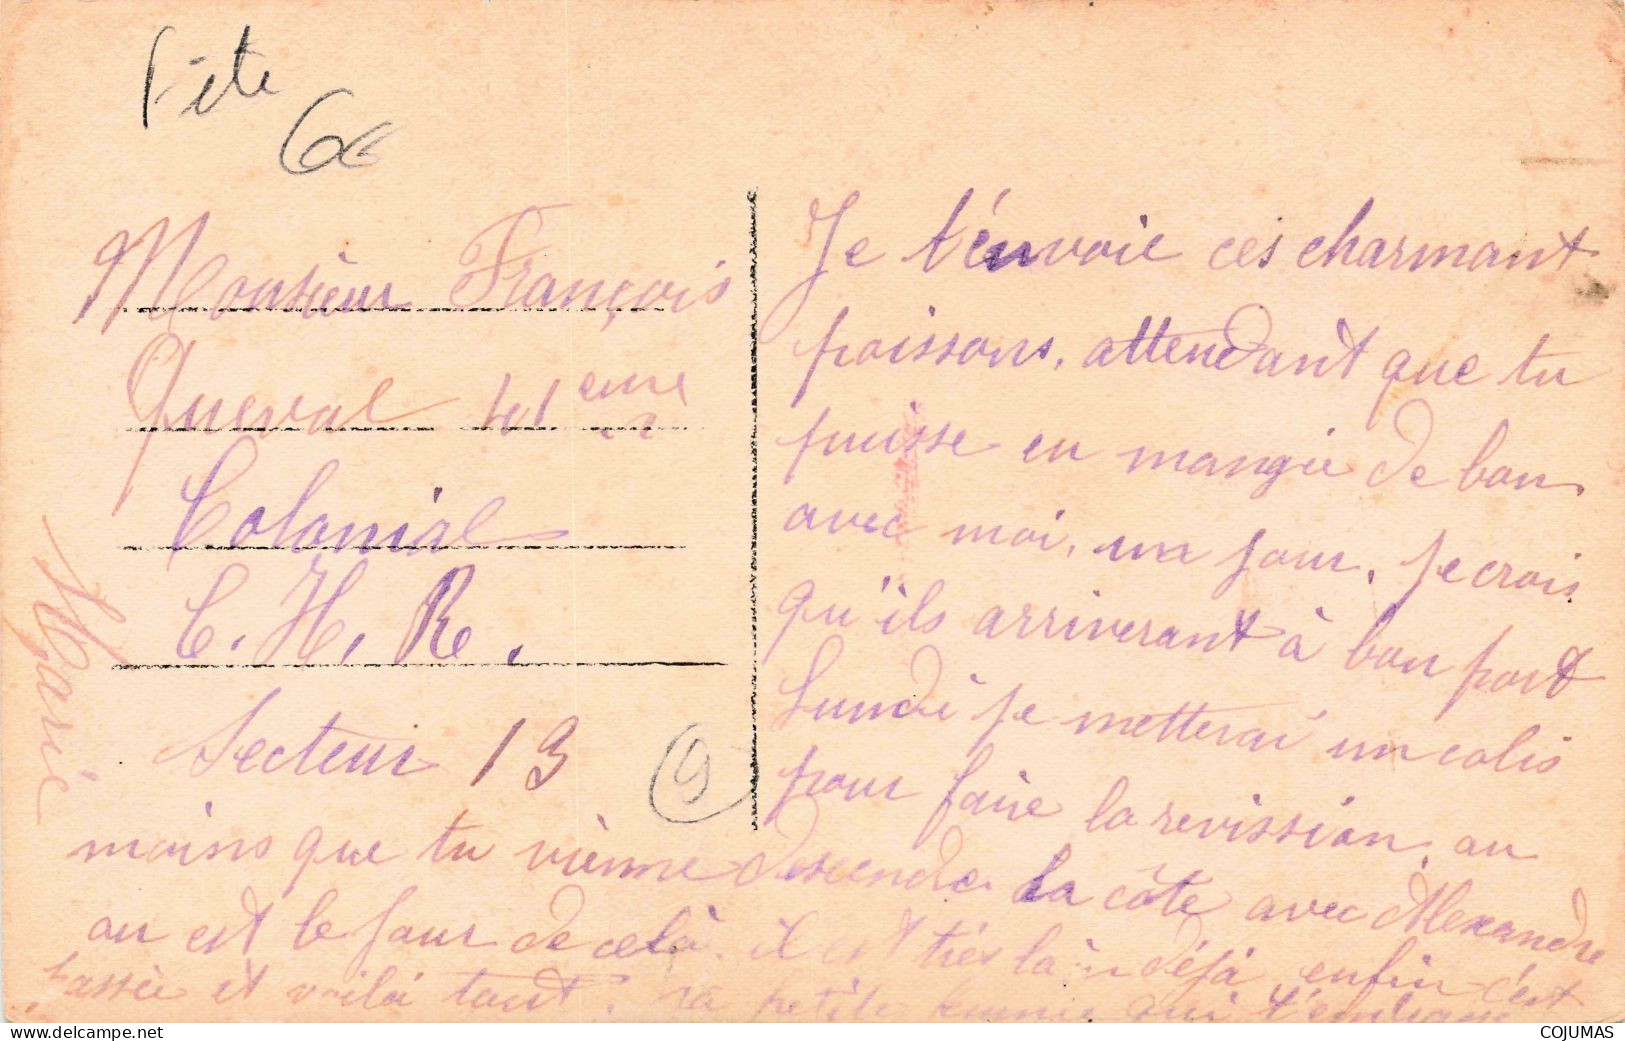 Fête
6€
Monsieur François
Queval 41eme
Colonial
C. H. R.
Secteur 13
9
Marie
Je t'envoie ces charmant
poissons, attendant que tu
puisse en mangie de bon
avec moi, un jour, je crois
qu'ils arriverant à bon port
Lundi je metterai un colis
pour faire la revission, au
moins que tu vienne descendre la côte avec Alexandre
ou est le jour de celà, il est très là déjà enfin c'est
passée et voilà tout. ta petite qui t'embrasse
COJUMAS